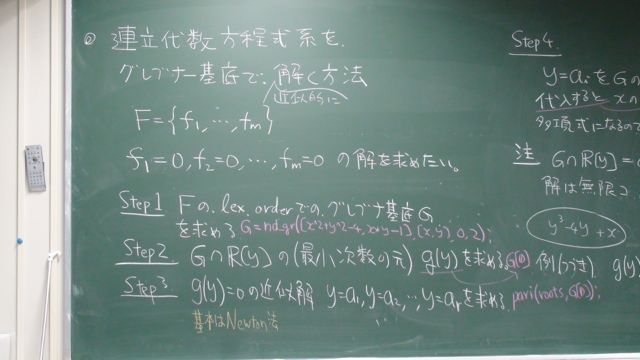 ◎ 連立代数方程式系を
グレブナー基底で、解く方法
近似的に
F={f1,…,fm}
f1=0, f2=0, …, fm=0 の解を求めたい。
Step1 Fの lex orderでのグレブナ基底G
を求める G=nd_gr([x^2+y^2-4,x*y-1],[x,y],0,2);
Step2. G∩R[y]の(最小次数の元) g(y)を求める。G[0]; 例(つづき) g(y)
Step3 g(y)=0の近似解 y=a1,y=a2,…,y=arを求める。pari(roots,G[0]);
基本はNewton法
Step4.
y=aiをGの
代入すると xの
多項式になるので
注 G∩R[y]=
解は無限コ
y^3-4y+x